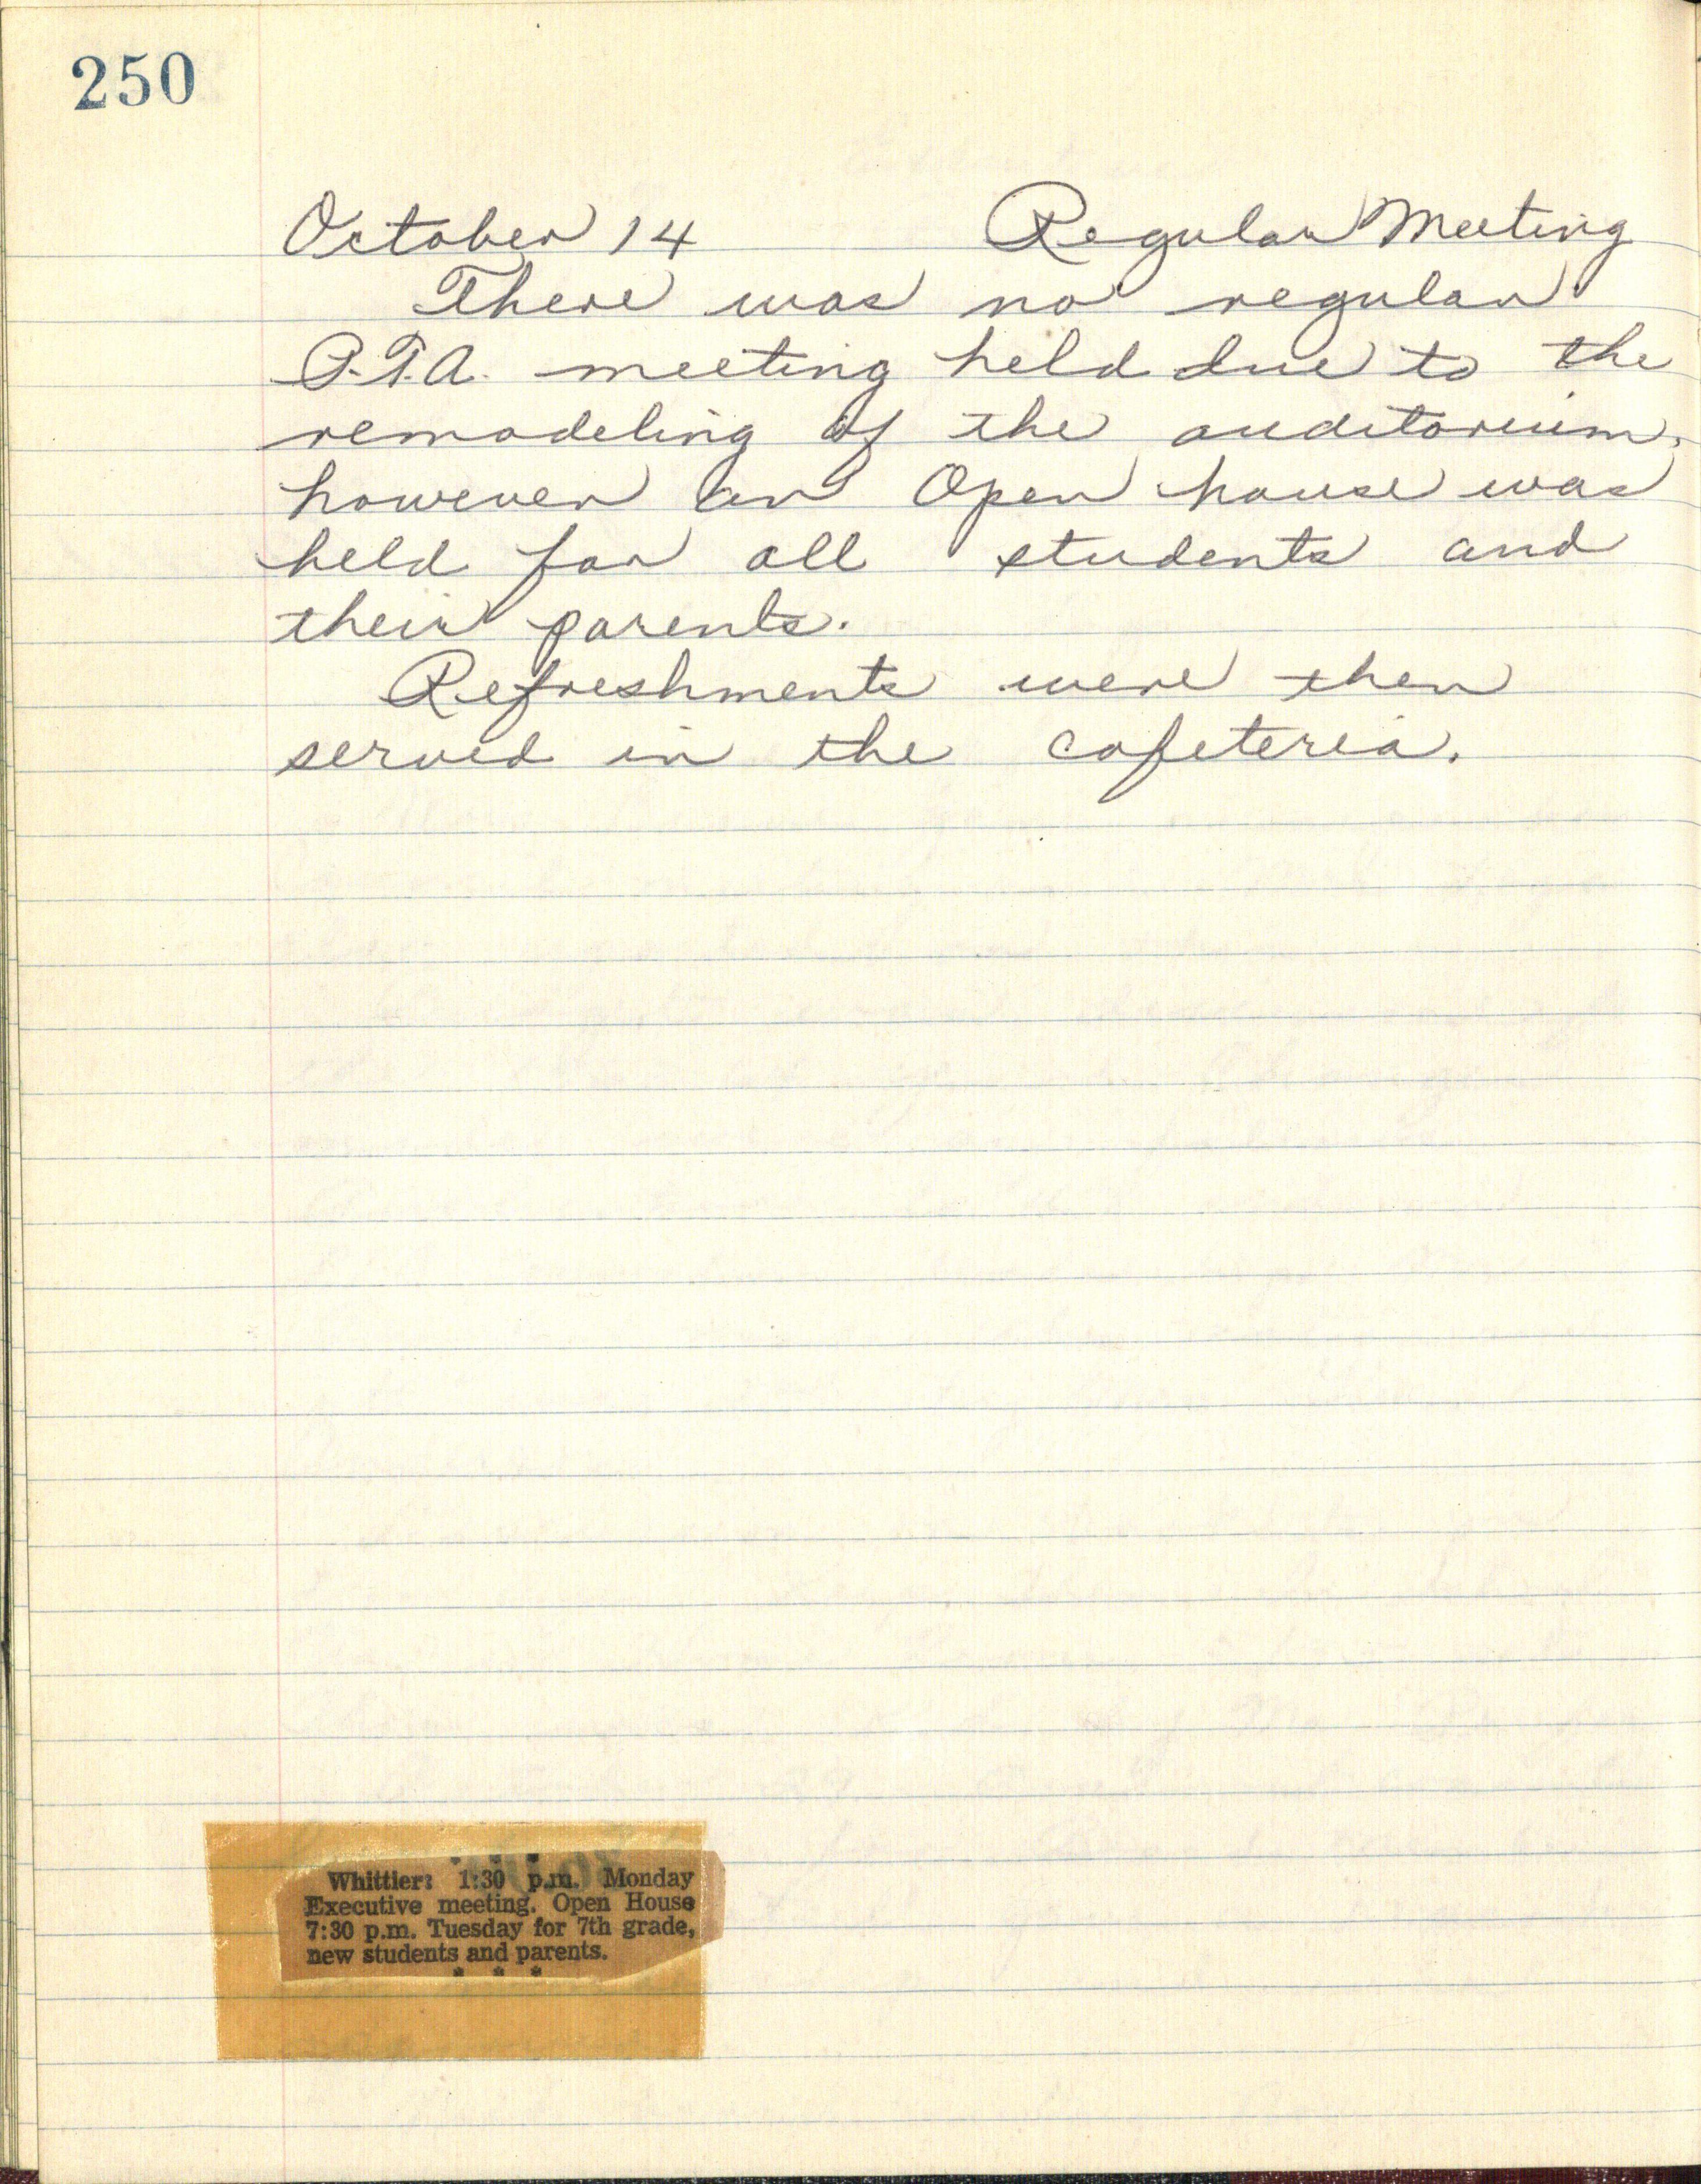 250
October 14 Regular Meeting
There was no regular
P.T.A. meeting held due to the
remodeling of the auditorium,
however an Open house was
held for all students and
their parents.
Refreshments were then
served in the cafeteria.
* * *
Whittier: 1:30 p.m. Monday
Executive meeting. Open House
7:30 p.m. Tuesday for 7th grade,
new students and parents.
* * *